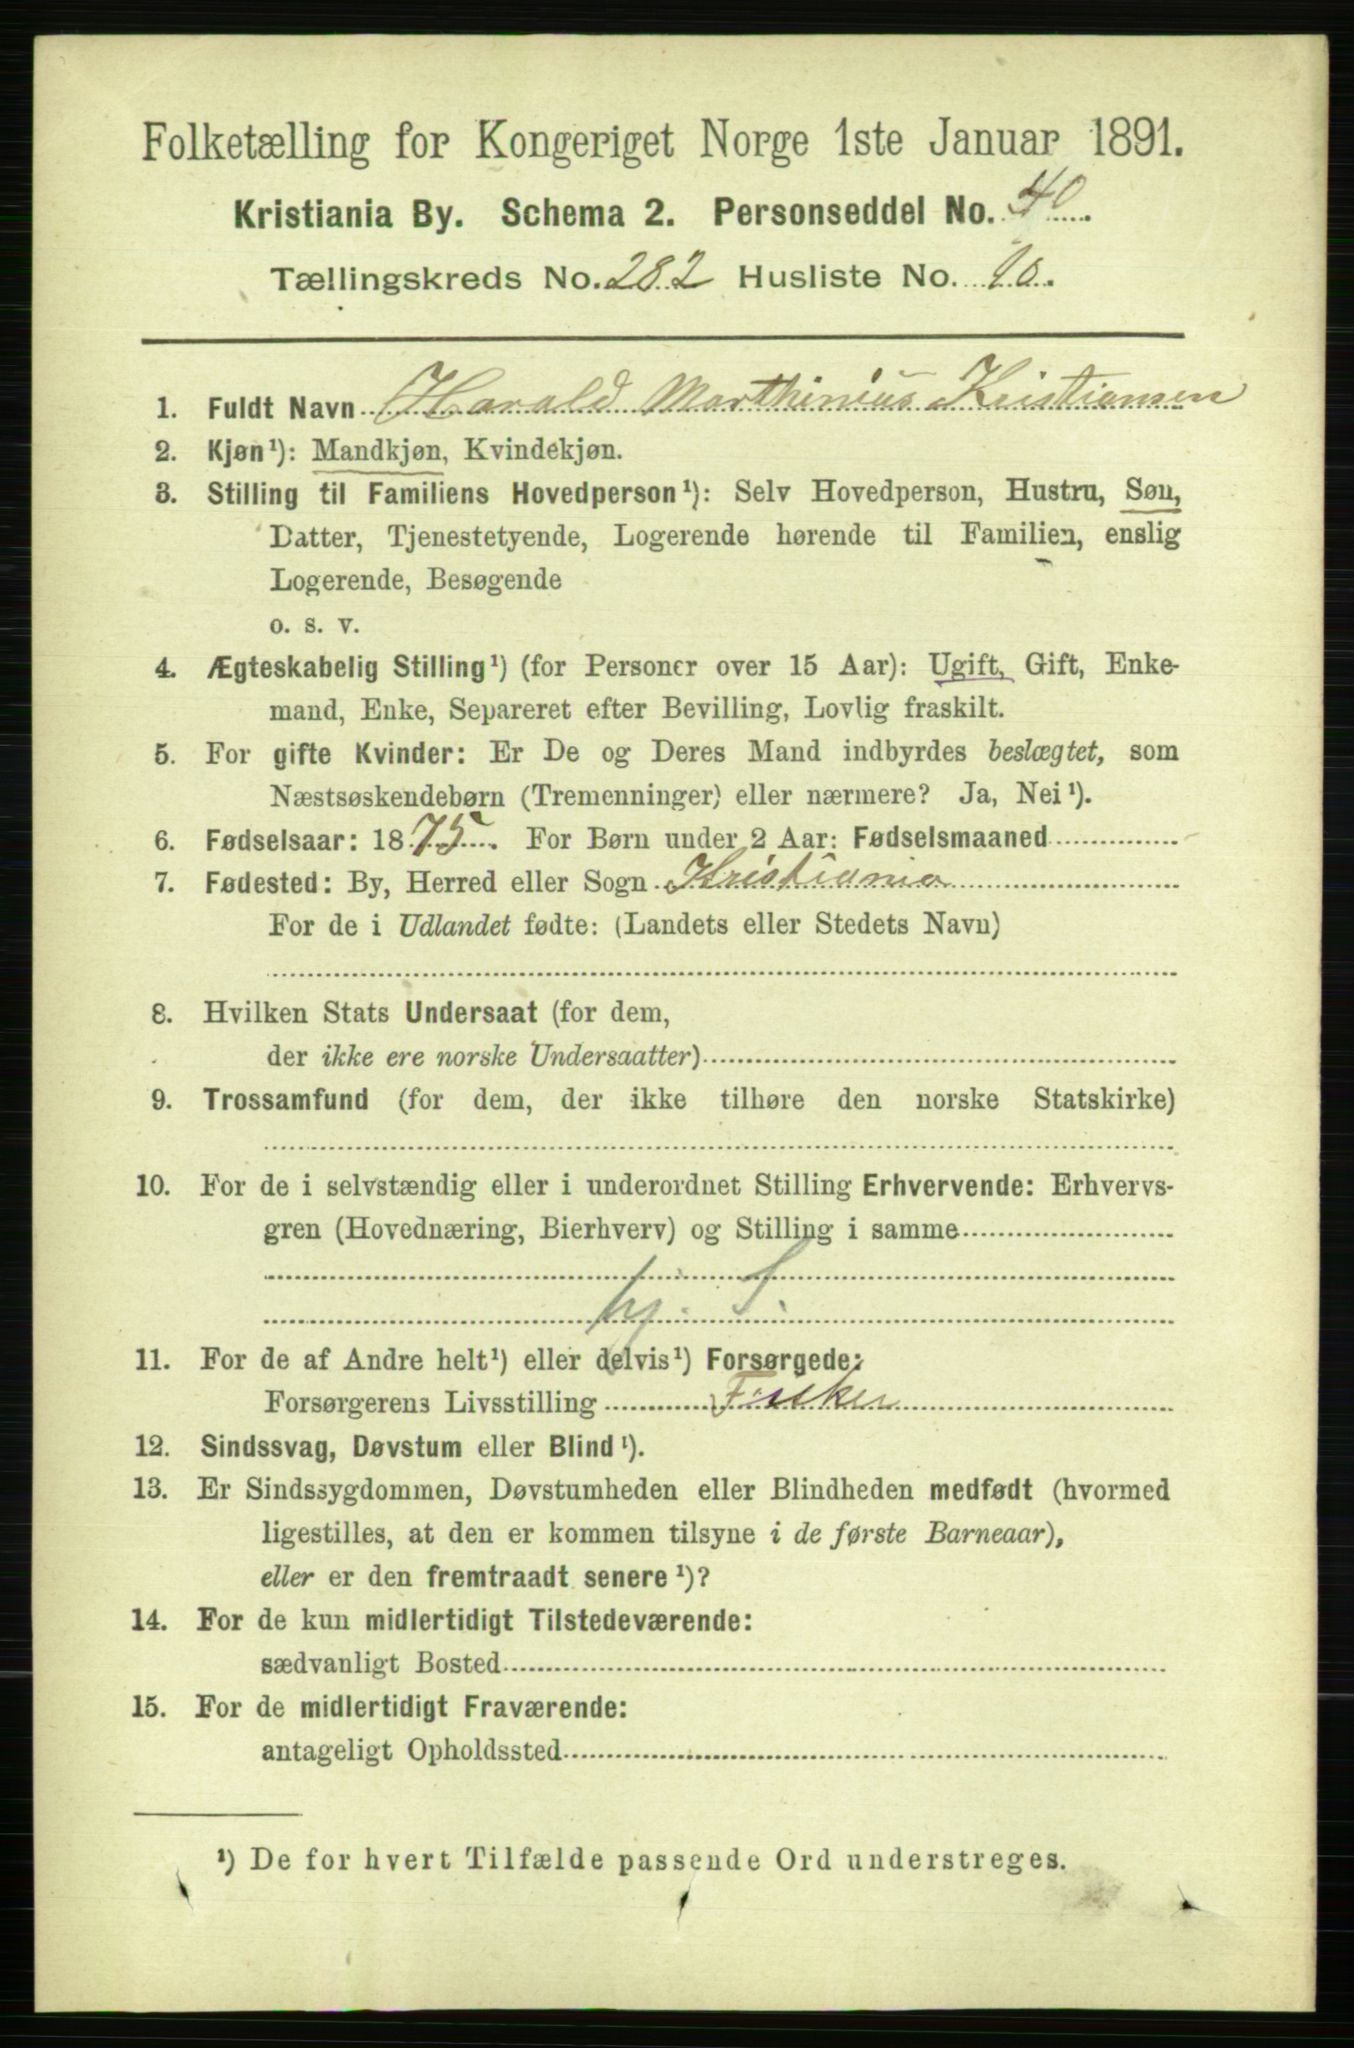 Folketælling for Kongeriget Norge 1ste Januar 1891.
Kristiania By. Schema 2. Personseddel No. 40
Tællingskreds No. 282 Husliste No.
1. Fuldt Navn Harald Marthinius Kristiansen
2. Kjøn¹): Mandkjøn, Kvindekjøn.
3. Stilling til Familiens Hovedperson¹): Selv Hovedperson, Hustru, Søn,
Datter, Tjenestetyende, Logerende hørende til Familien, enslig
Logerende, Besøgende
o. s. v.
4. Ægteskabelig Stilling¹) (for Personer over 15 Aar): Ugift, Gift, Enke-
mand, Enke, Separeret efter Bevilling, Lovlig fraskilt.
5. For gifte Kvinder: Er De og Deres Mand indbyrdes beslægtet, som
Næstsøskendebørn (Tremenninger) eller nærmere? Ja, Nei¹).
6. Fødselsaar: 1875. For Børn under 2 Aar: Fødselsmaaned
7. Fødested: By, Herred eller Sogn Kristiania
For de i Udlandet fødte: (Landets eller Stedets Navn)
8. Hvilken Stats Undersaat (for dem,
der ikke ere norske Undersaatter)
9. Trossamfund (for dem, der ikke tilhøre den norske Statskirke)
10. For de i selvstændig eller i underordnet Stilling Erhvervende: Erhvervs-
gren (Hovednæring, Bierhverv) og Stilling i samme
11. For de af Andre helt¹) eller delvis¹) Forsørgede:
Forsørgerens Livsstilling Fisker
12. Sindssvag, Døvstum eller Blind¹).
13. Er Sindssygdommen, Døvstumheden eller Blindheden medfødt (hvormed
ligestilles, at den er kommen tilsyne i de første Barneaar),
eller er den fremtraadt senere¹)?
14. For de kun midlertidigt Tilstedeværende:
sædvanligt Bosted
15. For de midlertidigt Fraværende:
antageligt Opholdssted
¹) De for hvert Tilfælde passende Ord understreges.